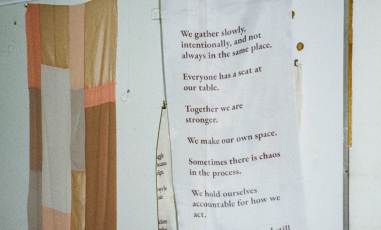 We gather slowly,
intentionally, and not
always in the same place.
Everyone has a seat at
our table.
Together we are
stronger.
We make our own space.
Sometimes there is chaos
in the process.
We hold ourselves
accountable for how we
act.
still